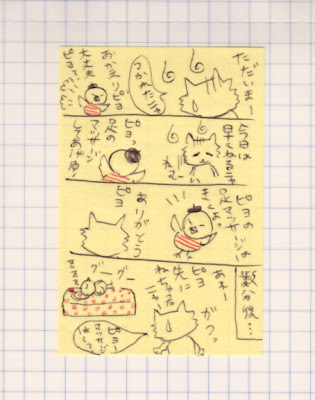 ただいまー
つかれたニャ
おかえりピヨ
大丈夫
ピヨ?
今日は
早くねるニャ
ねむー
ピヨっ
足の
マッサージ
してあげる!
ピヨの
足マッサージは
きくよっ
ありがとう
ピヨ
数分後…
あれー
ピヨ
先に
ねちゃった
ニャ
ガクっ
グーグー
ピヨー
マッサージ